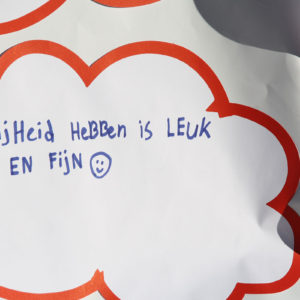 ijHeid HeBBen is LEUK
EN FijN